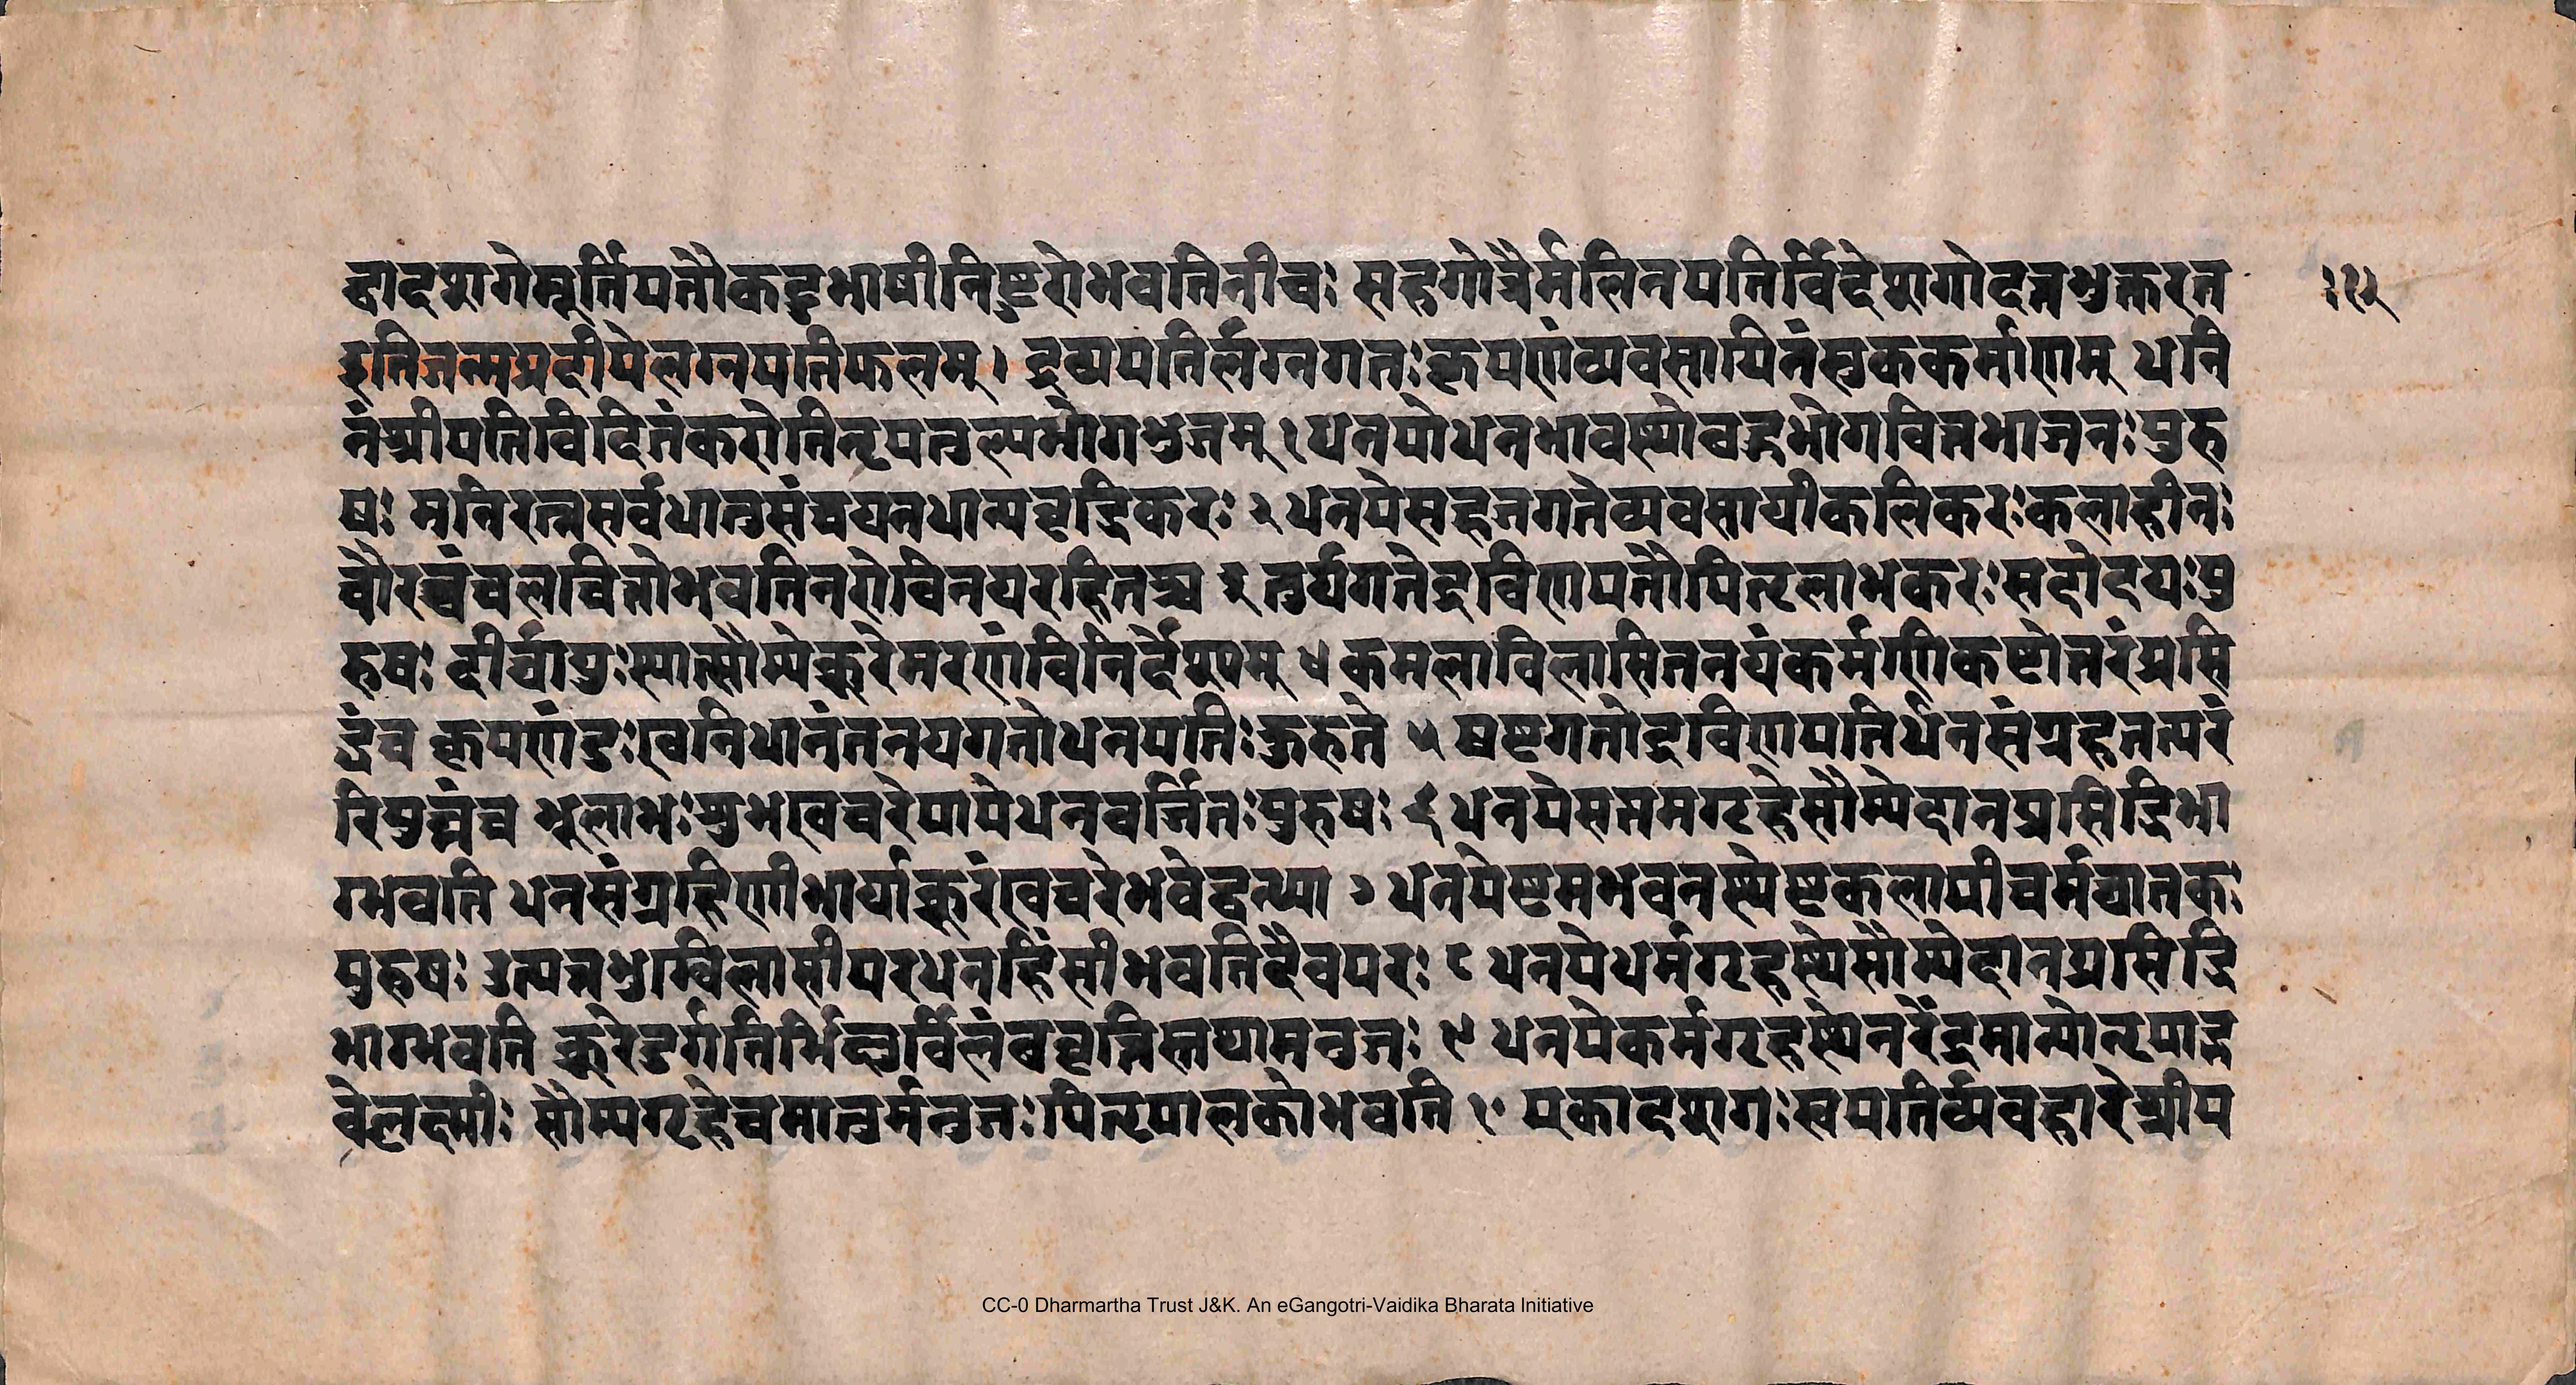 द्वादशगेमूर्त्तिपतौकटुभाषीनिष्टुरोभवतिनीचः सहगोत्रैर्मलिनपतिर्विदेशगोदत्तभुक्तरत
इतिजन्मप्रदीपेलग्नपतिफलम्। द्रव्यपतिर्लग्नगतःकृपणंव्यवसायिनंसुककर्माणम् धनि
नंश्रीपतिविदितंकरोतिनृपतुल्यभोगभुजम् १ धनपोधनभावस्थोबहुभोगवित्तभाजनःपुरु
षः मनिरत्नसर्वधातुसंचयनधान्यवृद्धिकरः २ धनपेसहजगतेव्यवसायीकलिकरःकलाहीनः
चौरश्चंचलचित्तोभवतिनरोविनयरहितश्च ३ तुर्यगतेद्रविणपतौपितृलाभकरःसदोदयःपु
रुषः दीर्घायुःस्यात्सौम्येक्रूरेमरणंविनिर्देश्यम् ४ कमलाविलासितनयंकर्मणिकष्टोत्तरंप्रसि
द्धंच कृपणंदुःखनिधानंतनयगतोधनपतिःकुरुते ५ षष्टगतोद्रविणपतिर्धनसंग्रहतत्परं
रिपुघ्नंच भूलाभःशुभखेचरेपापेधनवर्जितःपुरुषः ६ धनपेसप्तमगृहेसौम्येदानप्रसिद्धिभा
ग्भवति धनसंग्रहिणीभार्याक्रूरंखेचरेभवेद्वन्ध्या ७ धनपेष्टमभवनस्थेष्टकलापीचर्मघातकः
पुरुषः उत्पन्नभुग्विलासीपरधनहिंसीभवतिदैवपरः ८ धनपेधर्मगृहस्थेसौम्येदानप्रसिद्धि
भाग्भवति क्रूरेदुर्गतिर्भिक्षुर्विलंबवृत्तिस्तथामनुजः ९ धनपेकर्मगृहस्थेनरेंद्रमान्योनृपाद्भ
वेल्लक्ष्मीः सौम्यगृहेचमातुर्मनुजःपितृपालकोभवति १० एकादशगःस्वपतिर्व्यवहारेश्रीप
१५
CC-0 Dharmartha Trust J&K. An eGangotri-Vaidika Bharata Initiative